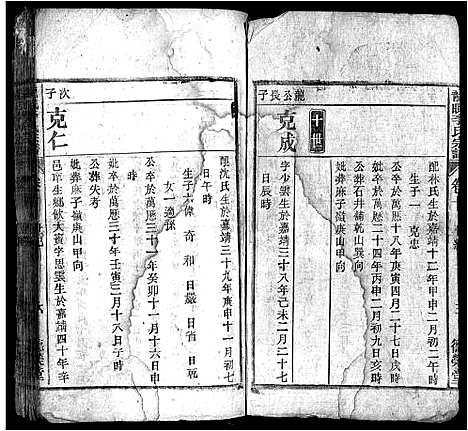 配林氏生於嘉靖十二年甲申二月初二日
生子一 克忠
公卒於萬歷十八年庚寅四月二十七日亥時
妣卒於萬歷二十四年丙申二月初九日亥時
公葬石井舖中心嶺山巽向
妣葬麻子嶺庚山甲向
十一世
龍公長子
克成
字少雲生於嘉靖三十八年己未二月二十八
日辰時
配沈氏生於嘉靖三十九年庚申十一月初七
日午時
生子六 偉 奇 和 日嚴 日省 日
女一適孫
公卒於萬歷三十一年癸卯十一月十六日申
時
妣卒於萬歷三十年壬寅三月十八日子時
公葬失考
妣葬麻子嶺庚山甲向
次子
克仁
邑庠生鄉飲大賓字思雲生於嘉靖四十年辛